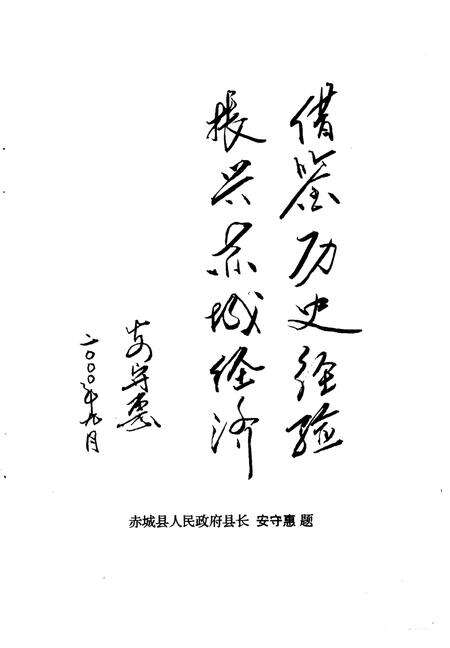 借鉴历史经验
振兴赤城经济
安守惠
二〇〇〇年九月
赤城县人民政府县长 安守惠 题